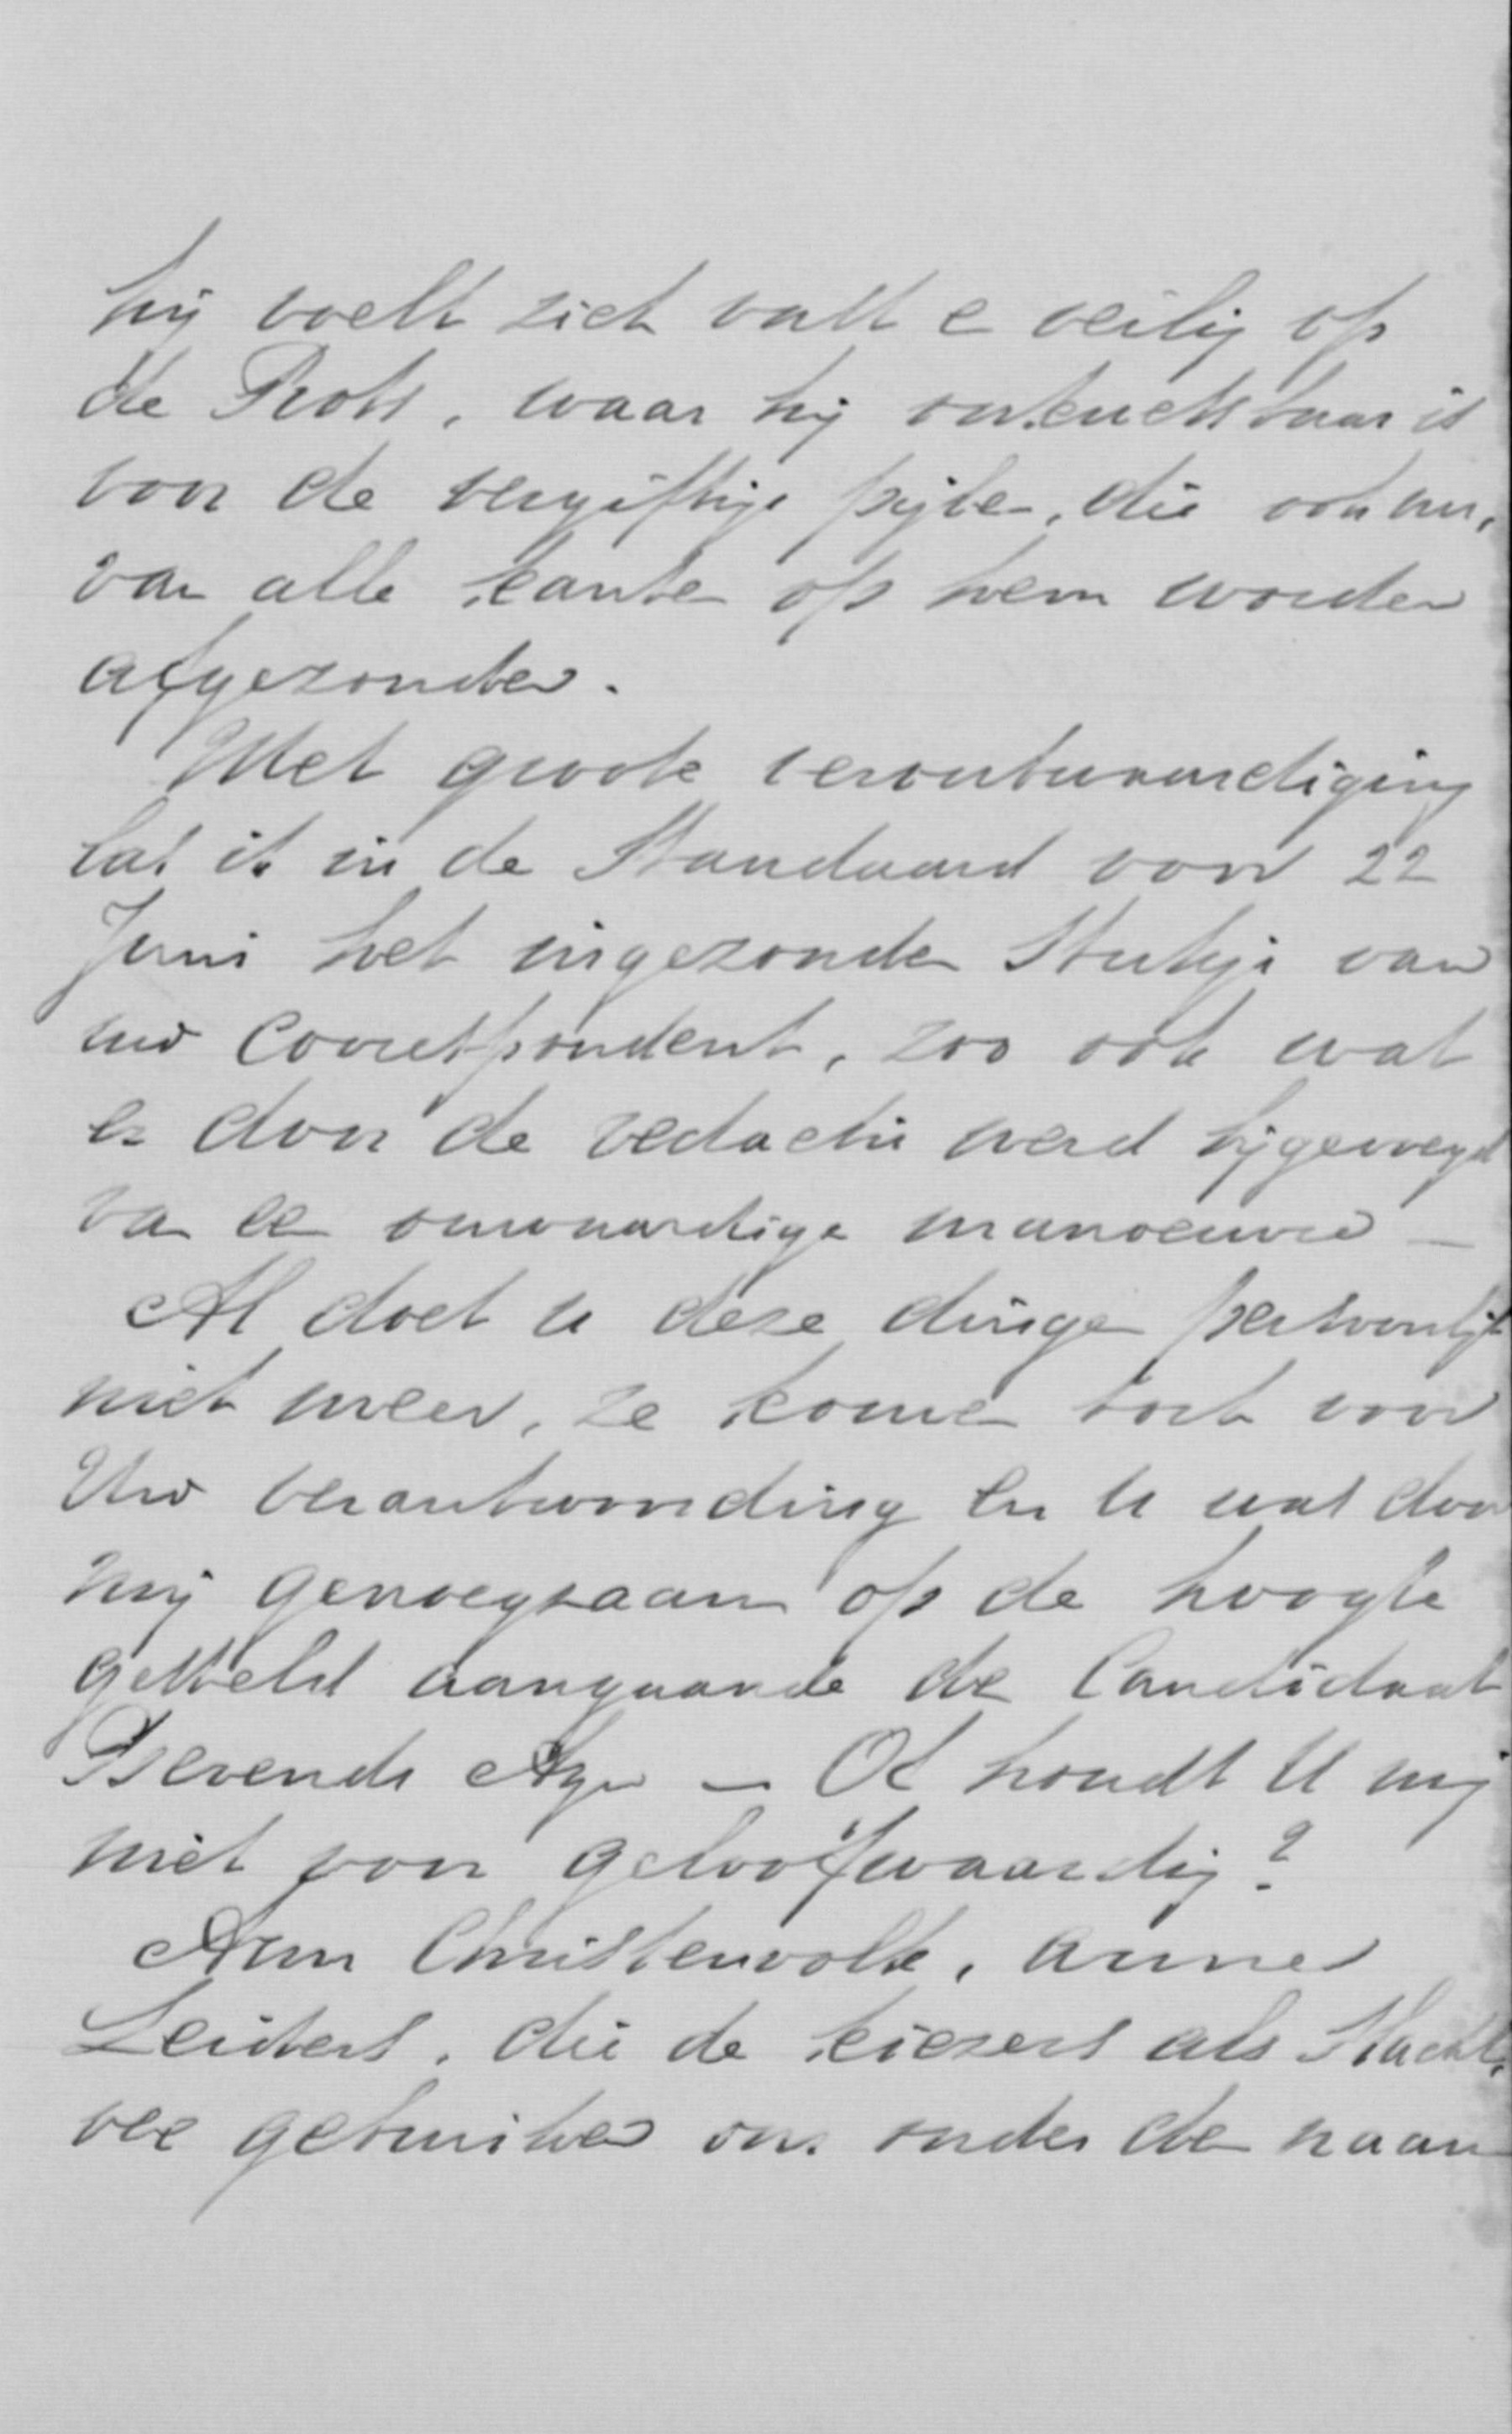 hij voelt zich vast e veilig op
de Rots, waar hij onkwetsbaar is
voor de vergiftige pijlen, die ook nu,
van alle kanten op hem worden
afgezonden.
Met groote verontwaardiging
las ik in de Standaard voor 22
Juni het ingezonden Stukje van
uw Correspondent, zoo ook wat
er door de redactie werd bijgevoegd
van een onwaardige manoeuvre —
Al doet u deze dingen persoonlijk
niet meer, ze komen toch voor
Uw verantwoording en U was door
mij genoegzaam op de hoogte
gesteld aangaande de Candidaat
— Of houdt U mij
niet voor geloofwaardig?
Arm Christenvolk, arme
Leiders, die de kiezers als Slacht,
vee gebruiken om onder den naam